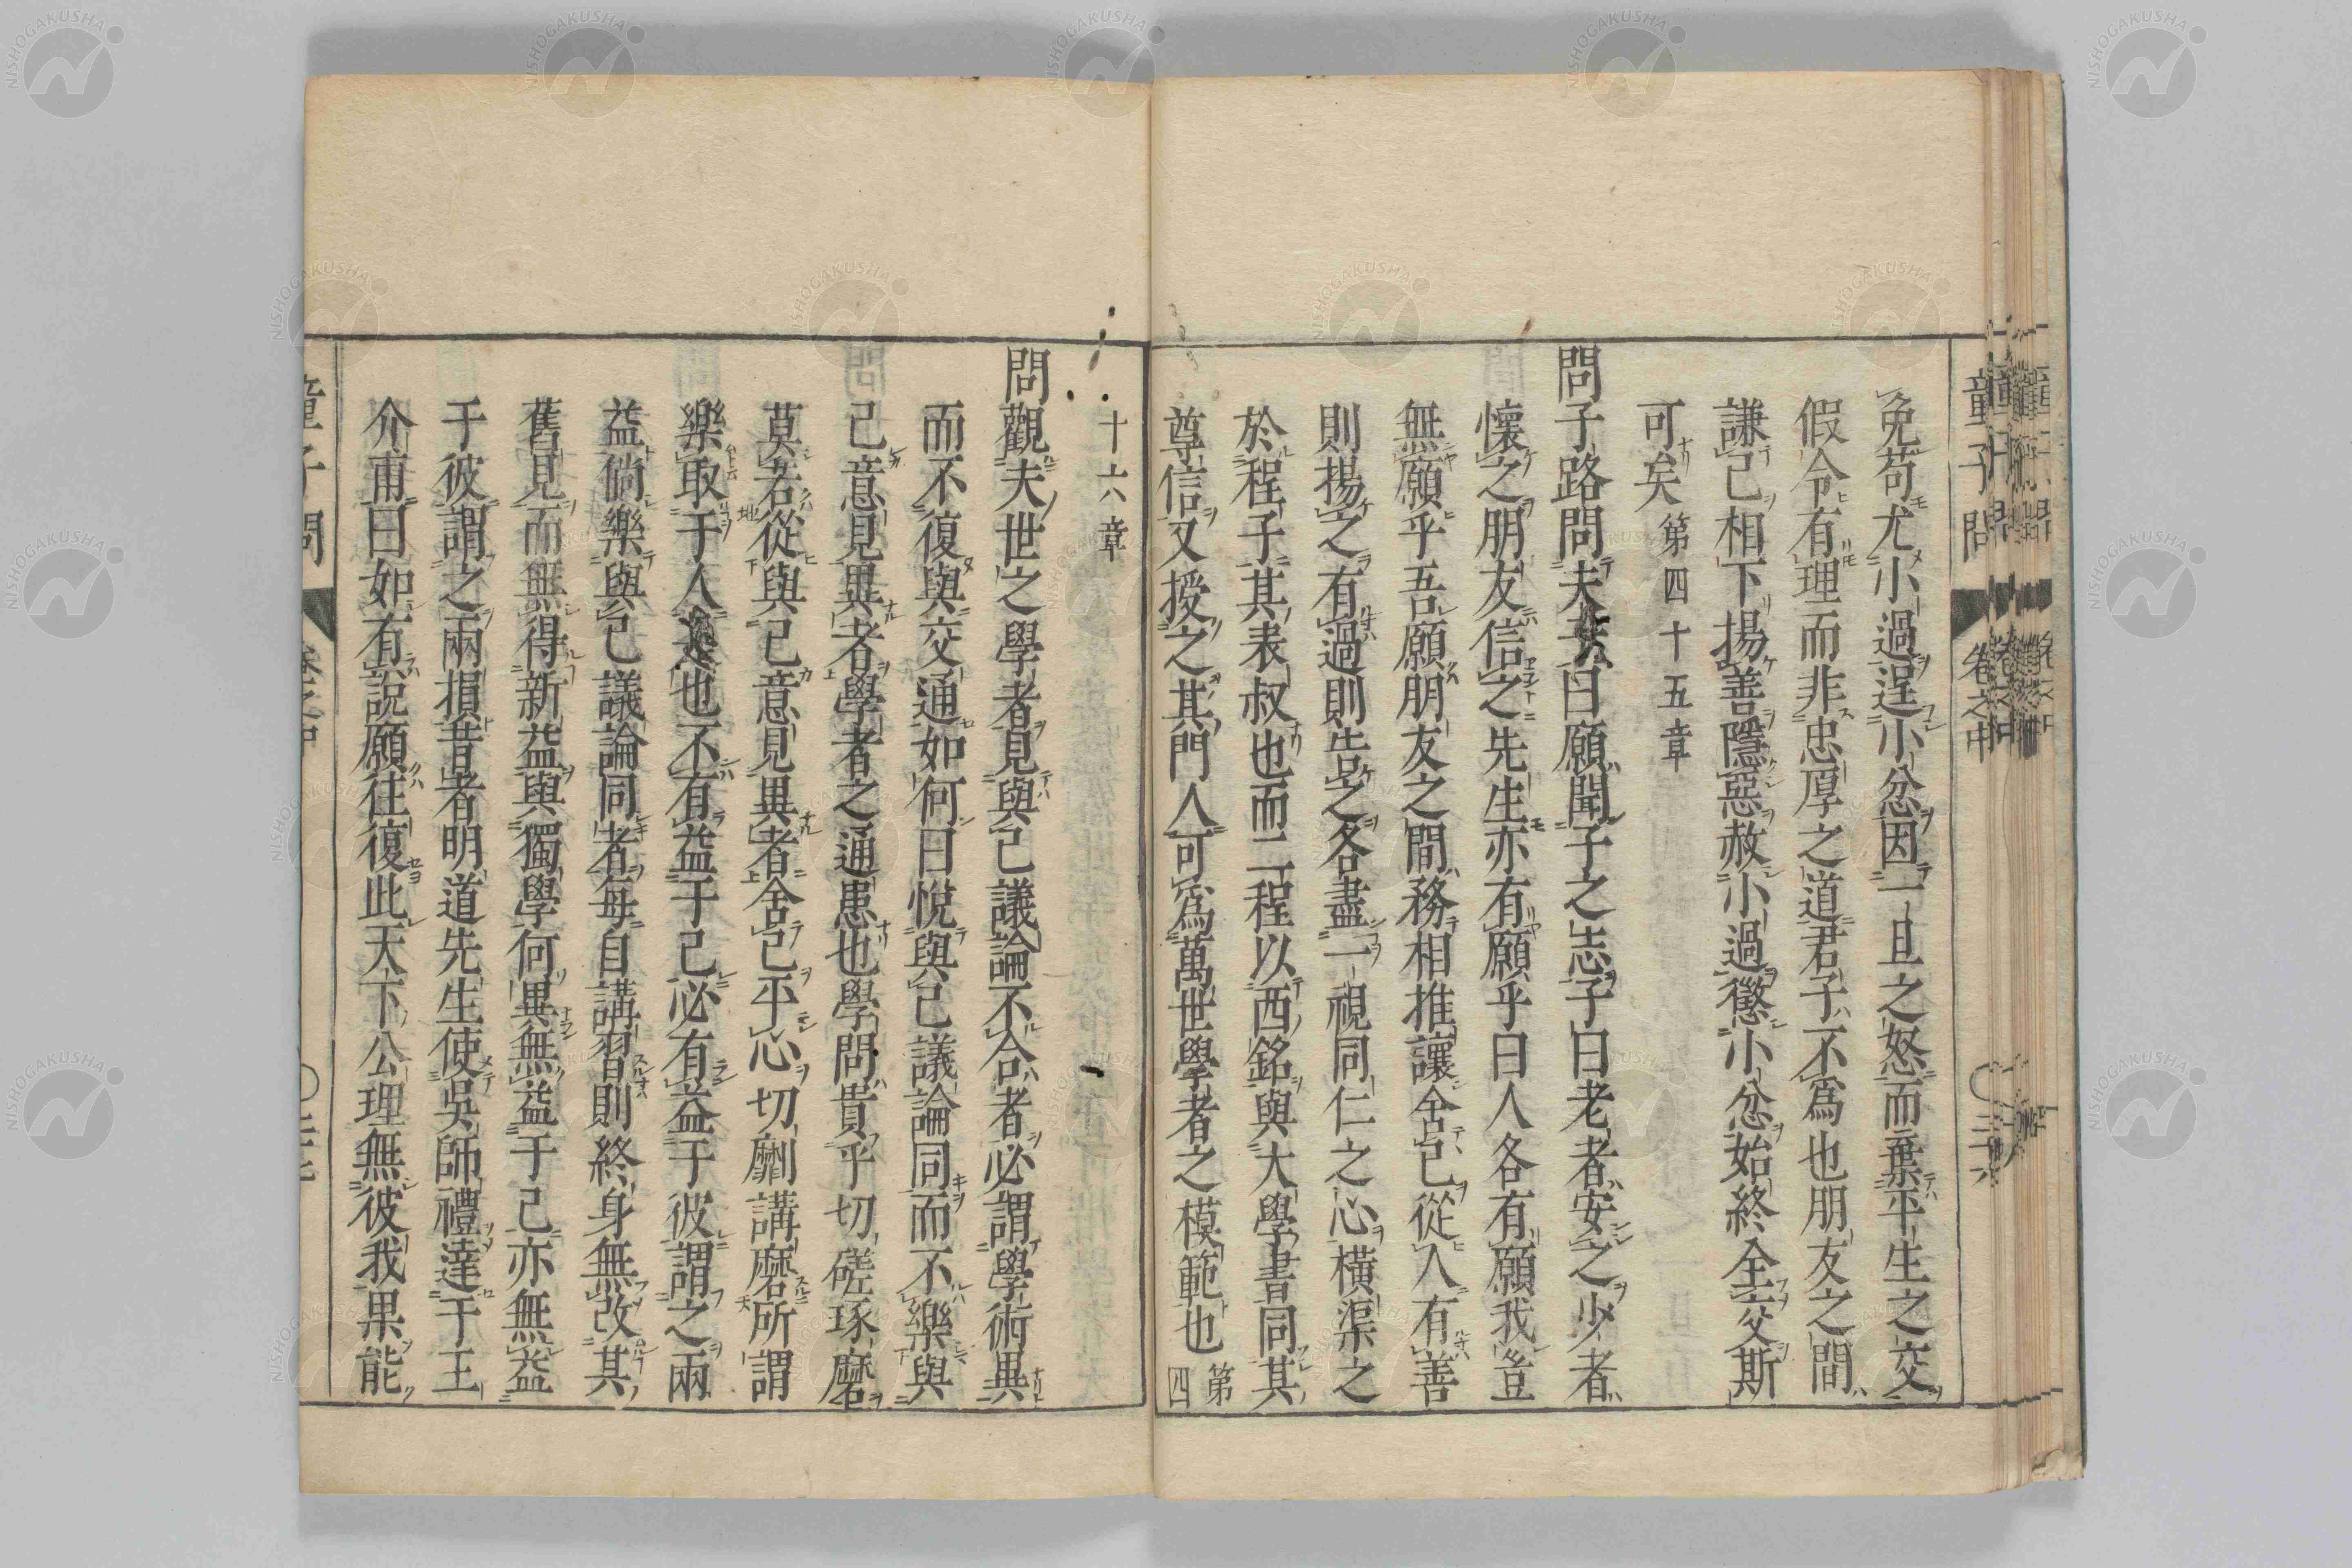 童子問 卷之中 三十六
免苟尤小過逞小忿因一旦之怒而棄平生之交
假令有理而非忠厚之道君子不爲也朋友之間
謙己相下揚善隱惡赦小過懲小忿始終全交斯
可矣 第四十五章
問子路問夫子曰願聞子之志子曰老者安之少者
懷之朋友信之先生亦有願乎曰人各有願我豈
無願乎吾願朋友之間務相推讓舍己從人有善
則揚之有過則告之各盡一視同仁之心橫渠之
於程子其表叔也而二程以西銘與大學書同其
尊信又授之其門人可爲萬世學者之模範也 第四
十六章
問觀夫世之學者見與己議論不合者必謂學術異
而不復與交通如何曰悅與己議論同而不樂與
己意見異者學者之通患也學問貴乎切磋琢磨
莫若從與己意見異者舍己平心切劘講磨所謂
樂取于人也不有益于己必有益于彼謂之兩
益倘樂與己議論同者每自講習則終身無改其
舊見而無得新益與獨學何異無益于己亦無益
于彼謂之兩損昔者明道先生使吳師禮達于王
介甫曰如有說願往復此天下公理無彼我果能
童子問 卷之中
NISHOGAKUSHA